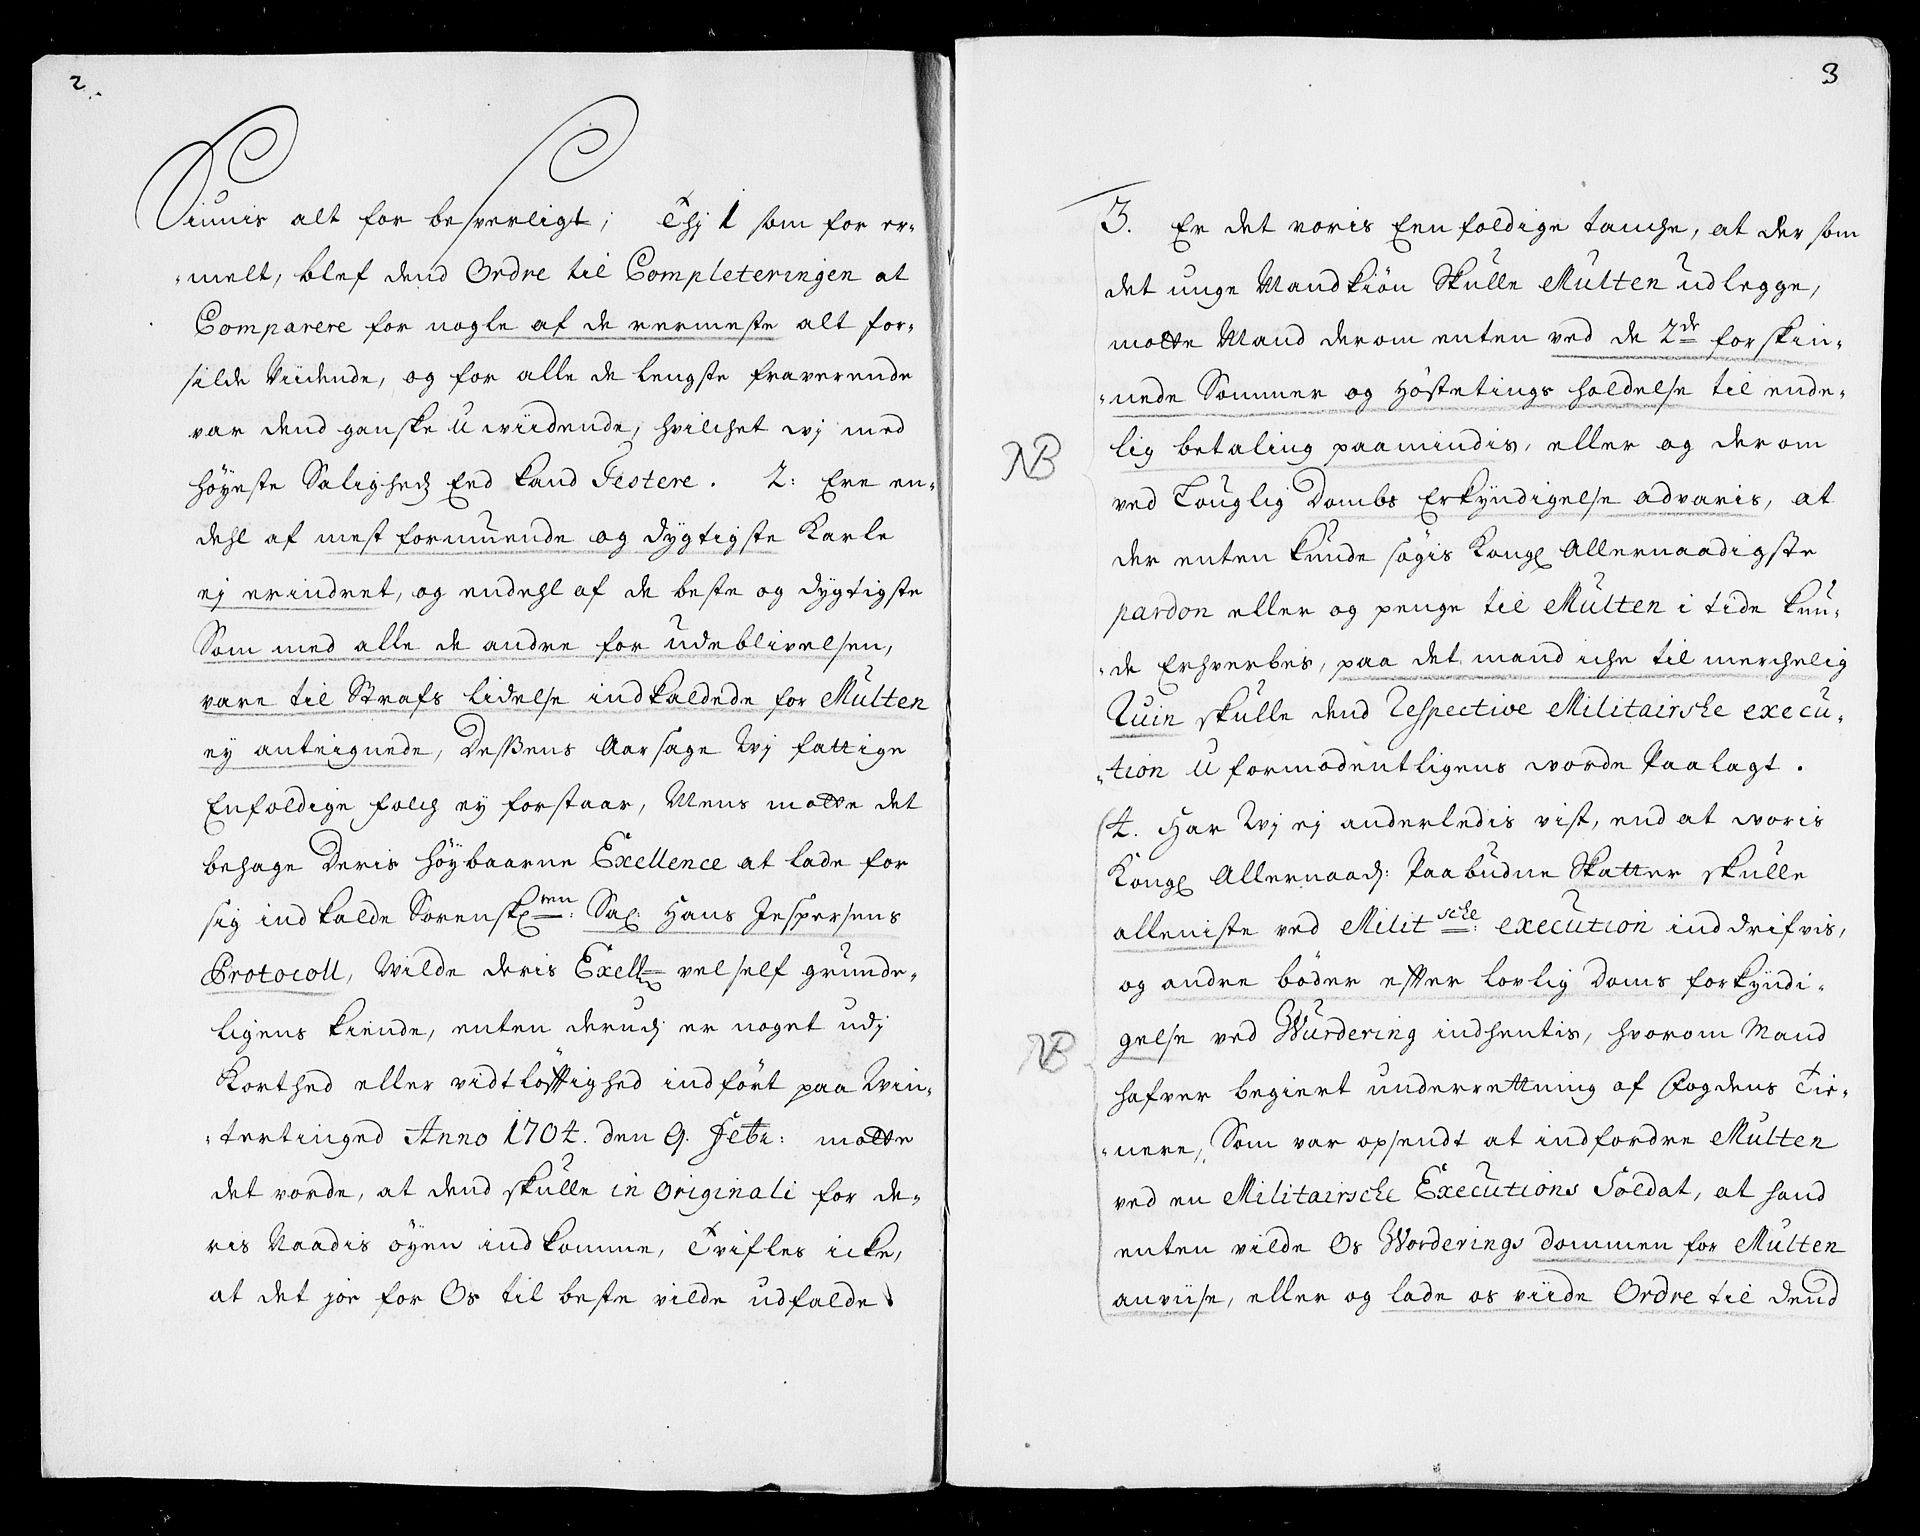 2.
Siunis alt for besverligt; Thj 1 som for er-
melt, blef dend Ordre til Completeringen at
Comparere for nogle af de nermeste alt for-
silde Viidende, og for alle de lengste fraverende
var dend ganske Uwiidende, hvilchet wj med
höyeste Saligheds Eed kand Testere. 2: Ere en-
dehl af mest formuende og dygtigste Karle
ej erindret, og endehl af de beste og dygtigste
Som med alle de andre for udeblivelsen,
vare til Strafs lidelse indkaldede for Multen
ey anteignede, Deßens Aarsage Wj fattige
Enfoldige folch ey forstaar, Mens motte det
behage Deris Höybaarne Exellence at lade for
sig indkalde Sorenskr. ren: Sal: Hans Jespersens
Protocoll, Wilde deris Exell. vel self grunde-
ligens kiende, enten derudj er noget udj
Korthed eller vidtlöfftighed indfört paa Win-
tertinged Anno 1704. den 9. Febr: motte
det vorde, at dend skulle in Originali for de-
ris Naadis öyen indkomme, Tvifles icke,
at det jo for Os til beste vilde udfalde.
3
3. Er det voris Eenfoldige tanche, at der som
det unge Mandkiön Skulle Multen udlegge,
motte Mand derom enten ved de 2de forskin-
nede Sommer og Höstetings holdelse til ende-
NB
lig betaling paamindis, eller og derom
ved Louglig Dombs Erkyndigelse advaris, at
der enten kunde sögis Kongl Allernaadigste
pardon eller og penge til Multen i tide kun-
de Erhverbes, paa det mand iche til merchelig
Ruin skulle dend Respective Militairske execu-
tion Uformodentligens worde Paalagt.
4. Har Wj ej anderledis vist, end at woris
Kongl Allernaad: Paabudne Skatter skulle
alleniste ved Milit sche: execution inddrifvis,
og andre böder effter lovlig Doms forkyndi-
NB
gelse ved Wurdering indhentis, hvorom Mand
hafver begiert underrettning af Fogdens Tie-
nere, Som var opsendt at indfordre Multen
ved en Militairsche Executions Soldat, at hand
enten vilde Os Worderings dommen for Multen
anviise, eller og lade os viide Ordre til dend